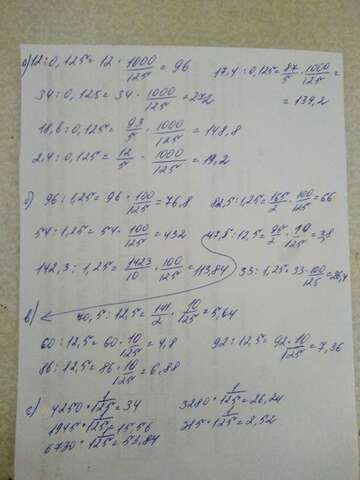 а) 12:0,125= 12 · 1000/125 = 96
17,4:0,125= 87/5 · 1000/125 =
34:0,125= 34 · 1000/125 =272
= 139,2
18,6:0,125= 93/5 · 1000/125 = 148,8
2,4:0,125= 12/5 · 1000/125 = 19,2
б) 96:1,25= 96 · 100/125 =76,8
82,5:1,25= 165/2 · 100/125 = 66
54:1,25= 54· 100/125 = 432
47,5:12,5= 95/2 · 10/125 = 3,8
142,3:1,25= 1423/10 · 100/125 =113,84
33:1,25=33· 100/125 =26,4
в)
70,5:12,5= 141/2 · 10/125 =5,64
60:12,5= 60· 10/125 = 4,8
92:12,5= 92· 10/125 = 7,36
86:12,5= 86· 10/125 = 6,88
г) 4250· 1/125 = 34
3280· 1/125 = 26,24
1945· 1/125 = 15,56
315· 1/125 = 2,52
6730· 1/125 = 53,84